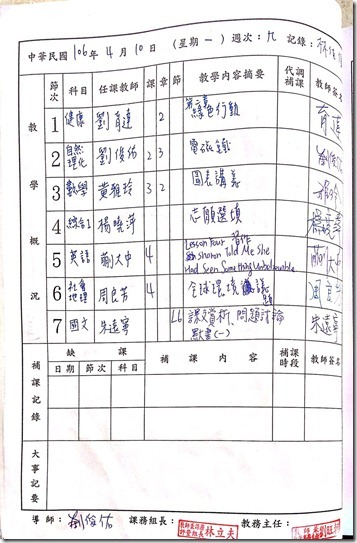 中華民國 106 年 4 月 10 日 (星期 一) 週次: 九 記錄:
教學概況
節次 科目 任課教師 課 章 節 教學內容摘要 代調補課 教師簽名
1 健康 劉育達 2 綠色行動
2 自然理化 劉俊佑 2 3 電磁鐵
3 數學 黃雅玲 3 2 圖表講義
4 綜合 楊曉萍 志願選填
5 英語 鄭大中 4 Lesson Four 習作
Sharon Told Me She
Had Seen Something Unbelievable
6 社會地理 周良芳 4 全球環境議題
7 國文 朱遠寧 L6 課文賞析、問題討論
默書(一)
補課記錄
缺課 補課內容 補課時段 教師簽名
日期 節次 科目
大事記要
導師: 劉俊佑 課務組長: 林立夫 教務主任: